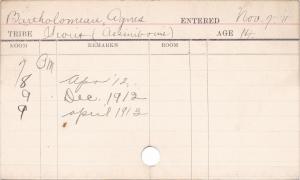 Bartholomeau, Agnes ENTERED Nov. 9-11
TRIBE Sioux (Assiniboine) AGE 14
ROOM REMARKS ROOM
7 Pm
8 Apr. '12,
9 Dec. 1912
9 april 1913